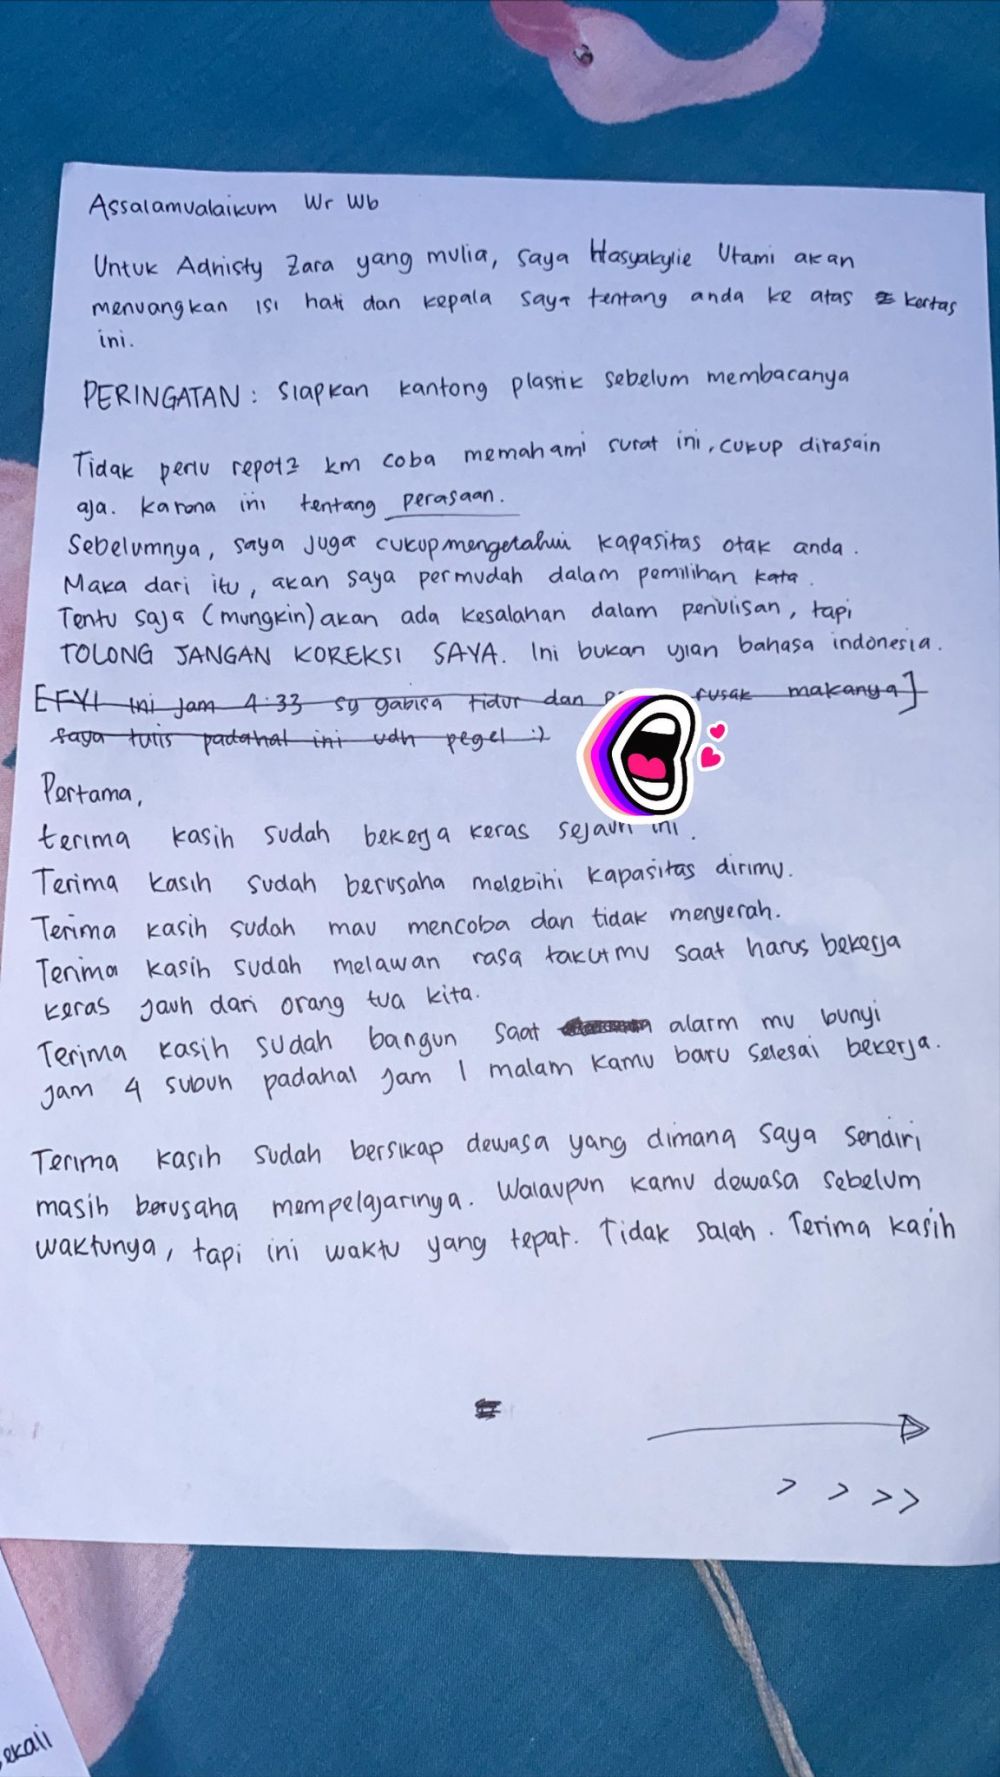 Assalamualaikum Wr Wb
Untuk Adhisty Zara yang mulia, saya Hasyakylie Utami akan
menuangkan isi hati dan kepala saya tentang anda ke atas kertas
ini.
PERINGATAN : siapkan kantong plastik sebelum membacanya
Tidak perlu repot2 km coba memahami surat ini, cukup dirasain
aja. karena ini tentang perasaan.
Sebelumnya, saya juga cukup mengetahui kapasitas otak anda.
Maka dari itu, akan saya permudah dalam pemilihan kata.
Tentu saja (mungkin) akan ada kesalahan dalam penulisan, tapi
TOLONG JANGAN KOREKSI SAYA. Ini bukan ujian bahasa indonesia.
[FYI ini jam 4:33 sy gabisa tidur dan rusak makanya]
saya tulis padahal ini udh pegel :)
Pertama,
terima kasih sudah bekerja keras sejauh ini.
Terima kasih sudah berusaha melebihi kapasitas dirimu.
Terima kasih sudah mau mencoba dan tidak menyerah.
Terima kasih sudah melawan rasa takutmu saat harus bekerja
keras jauh dari orang tua kita.
Terima kasih sudah bangun saat alarm mu bunyi
jam 4 subuh padahal jam 1 malam kamu baru selesai bekerja.
Terima kasih sudah bersikap dewasa yang dimana saya sendiri
masih berusaha mempelajarinya. Walaupun kamu dewasa sebelum
waktunya, tapi ini waktu yang tepat. Tidak salah. Terima kasih
> > >>
ekali